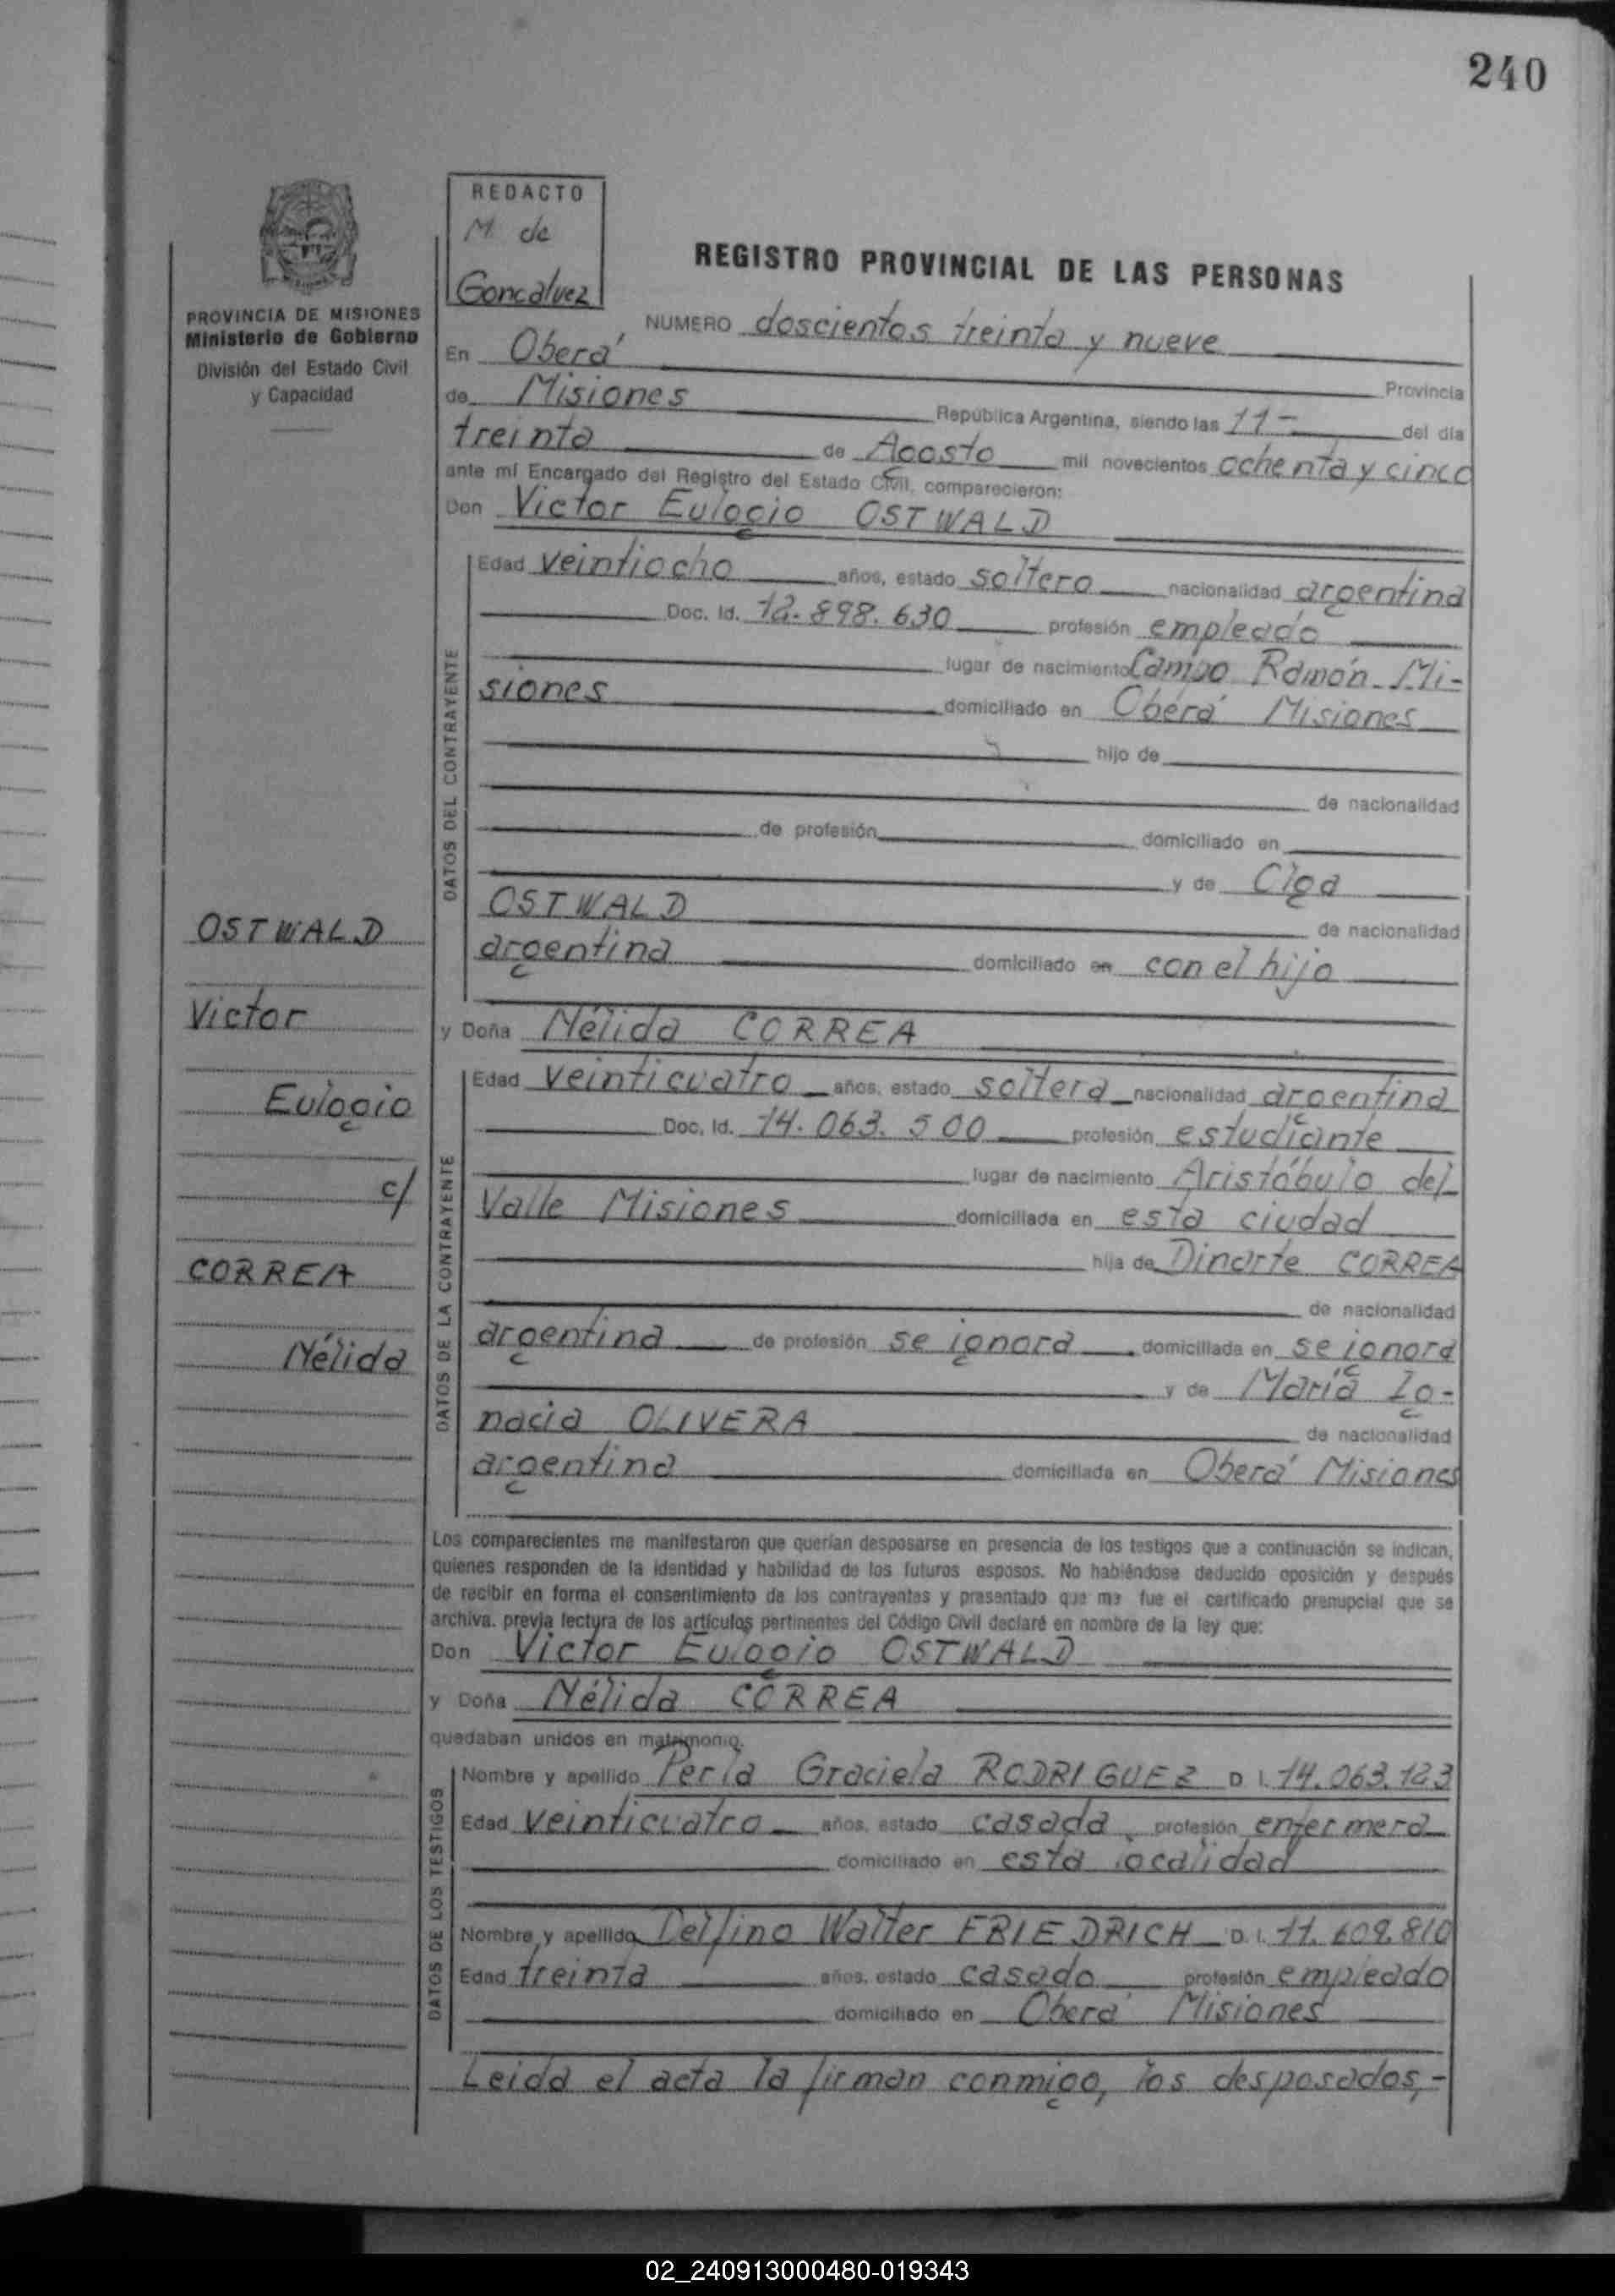 240
REDACTO
M. de
Goncalvez
PROVINCIA DE MISIONES
Ministerio de Gobierno
División del Estado Civil
y Capacidad
REGISTRO PROVINCIAL DE LAS PERSONAS
NUMERO doscientos treinta y nueve
En Oberá Provincia
de Misiones República Argentina, siendo las 11- del día
treinta de Agosto mil novecientos ochenta y cinco
ante mí Encargado del Registro del Estado Civil, comparecieron:
Don Victor Eulogio OSTWALD
DATOS DEL CONTRAYENTE
Edad veintiocho años, estado soltero nacionalidad argentina
Doc. Id. 12.898.630 profesión empleado
lugar de nacimiento Campo Ramón Mi-
siones domiciliado en Oberá Misiones
hijo de
de nacionalidad
de profesión domiciliado en
y de Olga
OSTWALD de nacionalidad
argentina domiciliado en con el hijo
y Doña Nélida CORREA
DATOS DE LA CONTRAYENTE
Edad veinticuatro años, estado soltera nacionalidad argentina
Doc. Id. 14.063.500 profesión estudiante
lugar de nacimiento Aristóbulo del
Valle Misiones domiciliada en esta ciudad
hija de Dinarte CORREA
de nacionalidad
argentina de profesión se ignora domiciliada en se ignora
y de María Ig-
nacia OLIVERA de nacionalidad
argentina domiciliada en Oberá Misiones
OSTWALD
Victor
Eulogio
c/
CORREA
Nélida
Los comparecientes me manifestaron que querían desposarse en presencia de los testigos que a continuación se indican,
quienes responden de la identidad y habilidad de los futuros esposos. No habiéndose deducido oposición y después
de recibir en forma el consentimiento de los contrayentes y presentado que me fue el certificado prenupcial que se
archiva. previa lectura de los artículos pertinentes del Código Civil declaré en nombre de la ley que:
Don Victor Eulogio OSTWALD
y Doña Nélida CORREA
quedaban unidos en matrimonio.
DATOS DE LOS TESTIGOS
Nombre y apellido Perla Graciela RODRIGUEZ D. I. 14.063.123
Edad veinticuatro años, estado casada profesión enfermera
domiciliado en esta localidad
Nombre y apellido Delfino Walter FRIEDRICH D. I. 11.609.810
Edad treinta años, estado casado profesión empleado
domiciliado en Oberá Misiones
Leida el acta la firman conmigo, los desposados,-
02_240913000480-019343